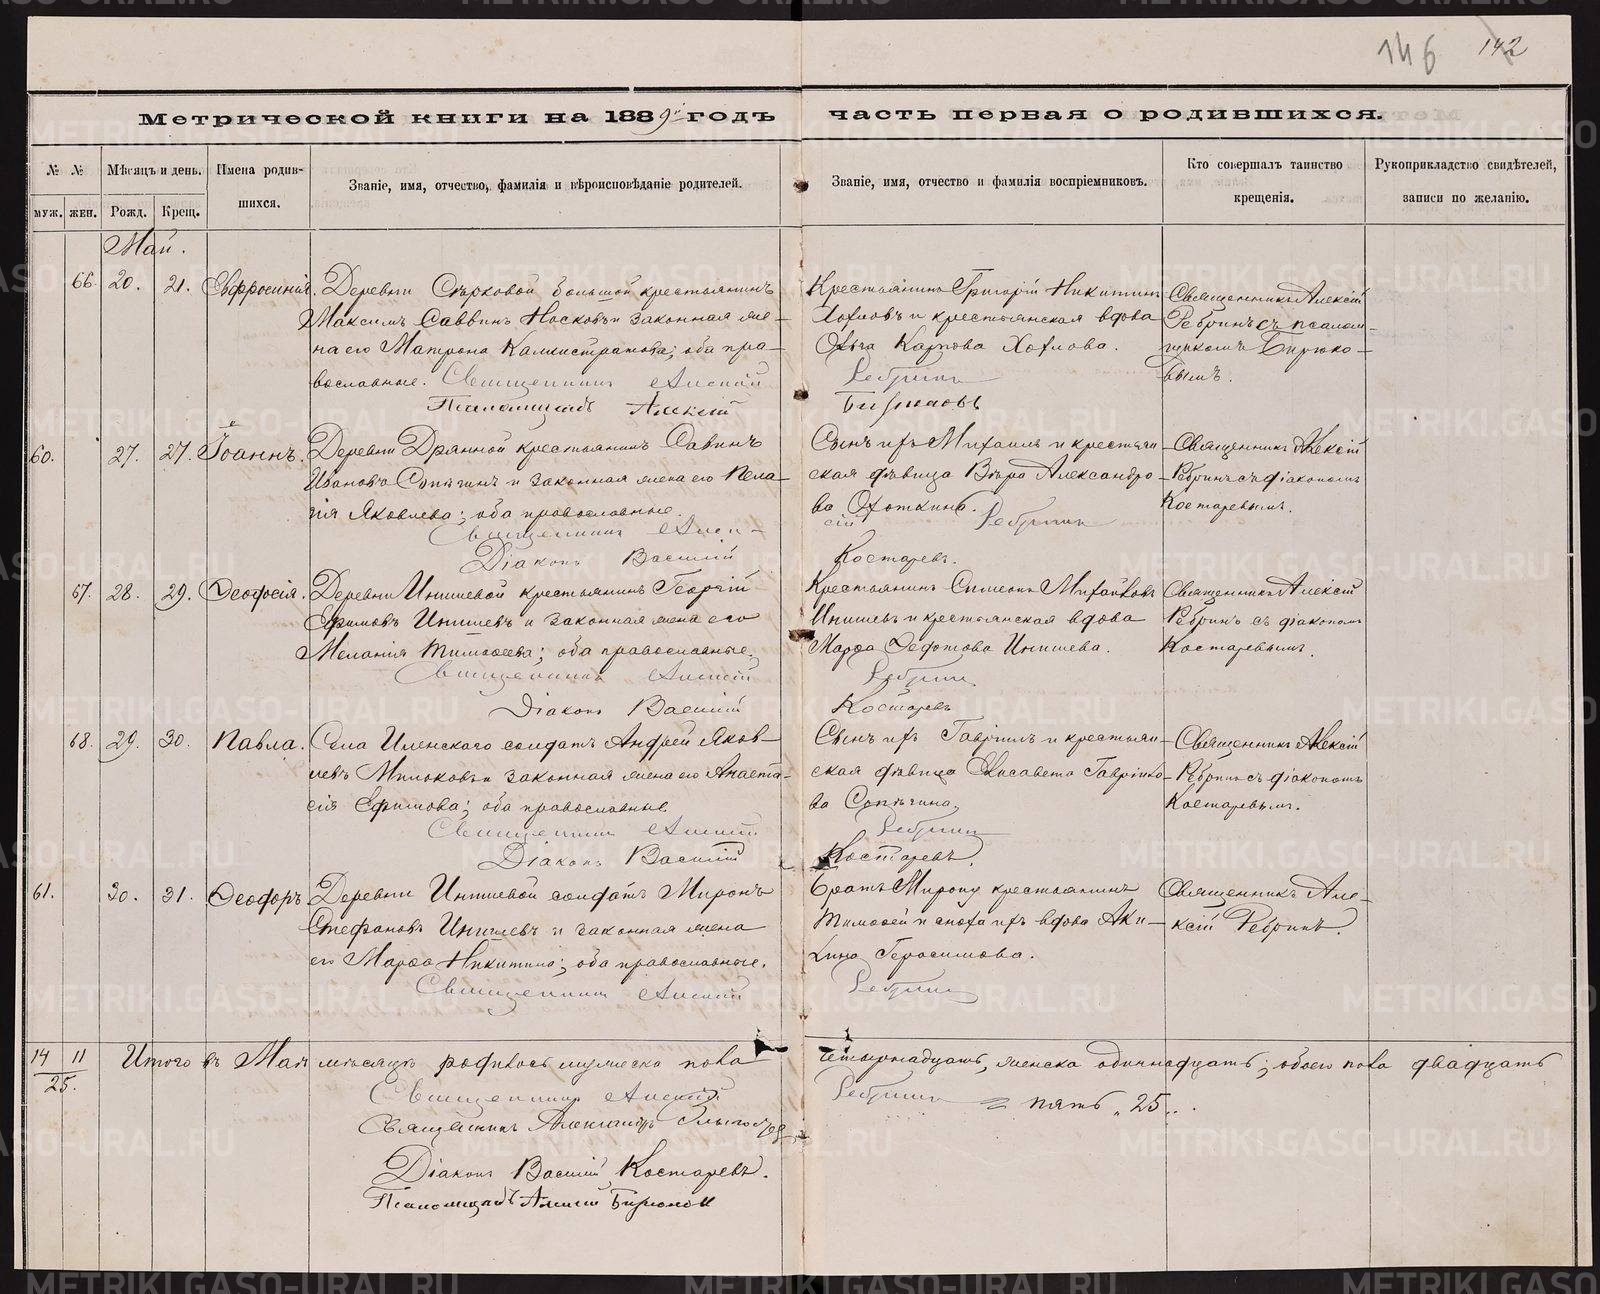 146 142
Метрической книги на 1889й годъ часть первая о родившихся.
№ № Мѣсяцъ и день. Имена родившихся. Званіе, имя, отчество, фамилія и вѣроисповѣданіе родителей. Званіе, имя, отчество и фамилія воспріемниковъ. Кто совершалъ таинство крещенія. Рукоприкладство свидѣтелей, записи по желанію.
муж. жен. Рожд. Крещ.
Май.
66. 20. 21. Евфросинія. Деревни Сѣрковой большой крестьянинъ
Максимъ Саввинъ Носковъ и законная же-
на его Матрона Каллистратова; оба пра-
вославные. Священникъ Алексій
Псаломщикъ Алексій
Крестьянинъ Григорій Никитинъ
Хохловъ и крестьянская вдова
Карпова Хохлова.
Ребринъ
Бирюковъ
Священникъ Алексій
Ребринъ съ псалом-
щикомъ Бирюко-
вымъ.
60. 27. 27. Іоаннъ. Деревни Дрянной крестьянинъ Савинъ
Ивановъ Сопѣгинъ и законная жена его Пела-
гія Яковлева; оба православные.
Священникъ Алек-
Діаконъ Василій
Сынъ ихъ Михаилъ и крестьян-
ская дѣвица Вѣра Александро-
ва Охоткина.
сій Ребринъ
Костаревъ.
Священникъ Алексій
Ребринъ съ діакономъ
Костаревымъ.
67. 28. 29. Ѳеодосія. Деревни Инишевой крестьянинъ Георгій
Ефимовъ Инишевъ и законная жена его
Меланія Тимоѳеева; оба православные.
Священникъ Алексій
Діаконъ Василій
Крестьянинъ Симеонъ Михайловъ
Инишевъ и крестьянская вдова
Марѳа Ѳедотова Инишева.
Ребринъ
Костаревъ
Священникъ Алексій
Ребринъ съ діакономъ
Костаревымъ.
68. 29. 30. Павла. Села Иленскаго солдатъ Андрей Яков-
левъ Милюковъ и законная жена его Анаста-
сія Ефимова; оба православные.
Священникъ Алексій
Діаконъ Василій
Сынъ ихъ Гавріилъ и крестьян-
ская дѣвица Елисавета Гаврило-
ва Сопѣгина.
Ребринъ
Костаревъ.
Священникъ Алексій
Ребринъ съ діакономъ
Костаревымъ.
61. 30. 31. Ѳеодоръ. Деревни Инишевой солдатъ Миронъ
Стефановъ Инишевъ и законная жена
его Марѳа Никитина; оба православные.
Священникъ Алексій
Братъ Мирону крестьянинъ
Тимоѳей и сноха ихъ вдова Аки-
лина Герасимова.
Ребринъ
Священникъ Але-
ксій Ребринъ.
14 11
25.
Итого въ Маѣ мѣсяцѣ родилось мужеска пола четырнадцать, женска одиннадцать; обоего пола двадцать
пять „25„.
Священникъ Алексій Ребринъ
Священникъ Александръ
Діаконъ Василій Костаревъ.
Псаломщикъ Алексій Бирюковъ
METRIKI.GASO-URAL.RU